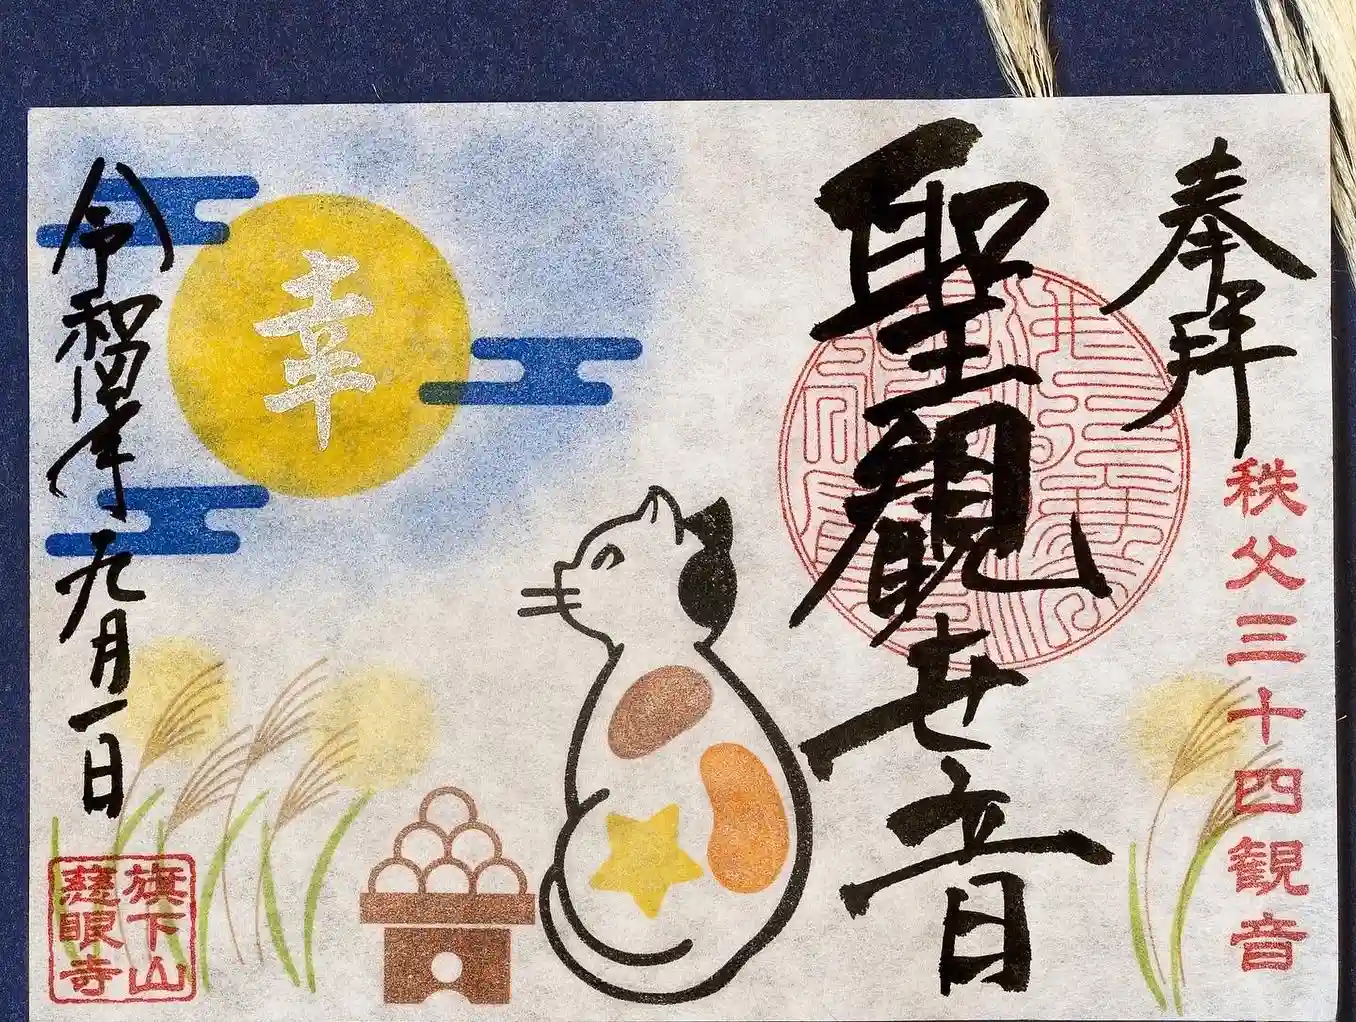 奉拝
秩父三十四観音
聖観世音
幸
令和四年九月一日
旗下山
慈眼寺